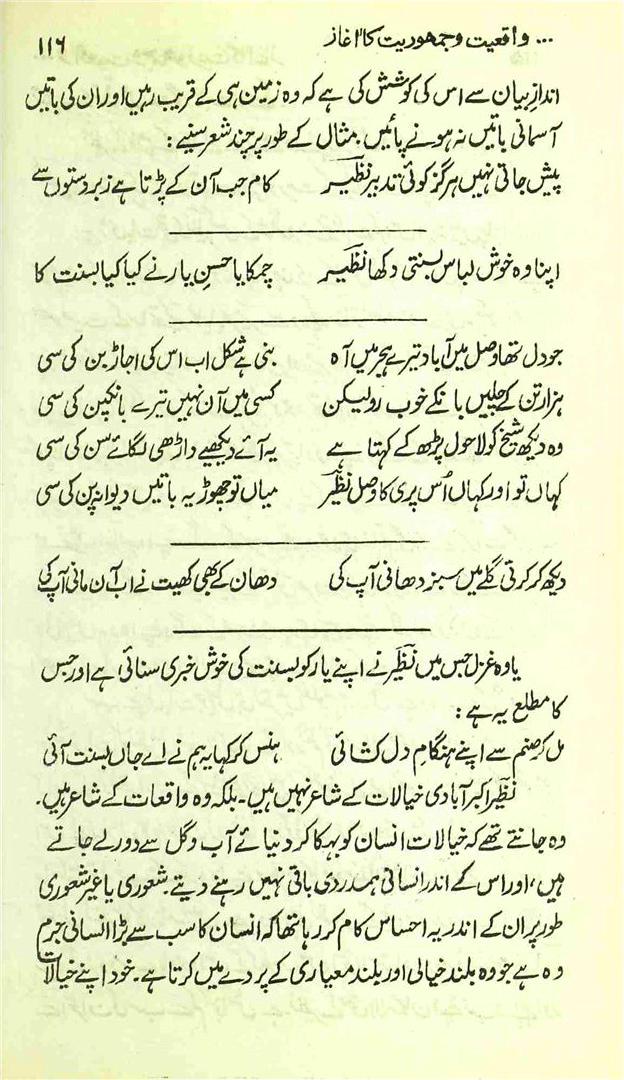 ... واقعیت و جمہوریت کا آغاز ۱۱۶
اندازِ بیان سے اس کی کوشش کی ہے کہ وہ زمین ہی کے قریب رہیں اور ان کی باتیں
آسمانی باتیں نہ ہونے پائیں۔ مثال کے طور پر چند شعر سنیے:
پیش جاتی نہیں ہرگز کوئی تدبیر نظیر کام جب آن کے پڑتا ہے زبردستوں سے
اپنا وہ خوش لباس بسنتی دکھا نظیر چمکایا حسنِ یار نے کیا کیا بسنت کا
جو دل تھا وصل میں آباد تیرے ہجر میں آہ بنی ہے شکل اب اس کی اجاڑ بن کی سی
ہزار تن کے چلیں بانکے خوب رو لیکن کسی میں آن نہیں تیرے بانکپن کی سی
وہ دیکھ شیخ کو لاحول پڑھ کے کہتا ہے یہ آئے دیکھیے داڑھی لگائے سن کی سی
کہاں تو اور کہاں اُس پری کا وصل نظیر میاں تو چھوڑ یہ باتیں دیوانہ پن کی سی
دیکھ کر کرتی گلے میں سبز دھانی آپ کی دھان کے بھی کھیت نے اب آن مانی آپ کی
یا وہ غزل جس میں نظیر نے اپنے یار کو بسنت کی خوش خبری سنائی ہے اور جس
کا مطلع یہ ہے:
مل کر صنم سے اپنے ہنگام دل کشائی ہنس کر کہا یہ ہم نے اے جاں بسنت آئی
نظیر اکبر آبادی خیالات کے شاعر نہیں ہیں۔ بلکہ وہ واقعات کے شاعر ہیں۔
وہ جانتے تھے کہ خیالات انسان کو بہکا کر دنیائے آب و گل سے دور لے جاتے
ہیں، اور اس کے اندر انسانی ہمدردی باقی نہیں رہنے دیتے۔ شعوری یا غیر شعوری
طور پر ان کے اندر یہ احساس کام کر رہا تھا کہ انسان کا سب سے بڑا انسانی جرم
وہ ہے جو وہ بلند خیالی اور بلند معیاری کے پردے میں کرتا ہے۔ خود اپنے خیالات